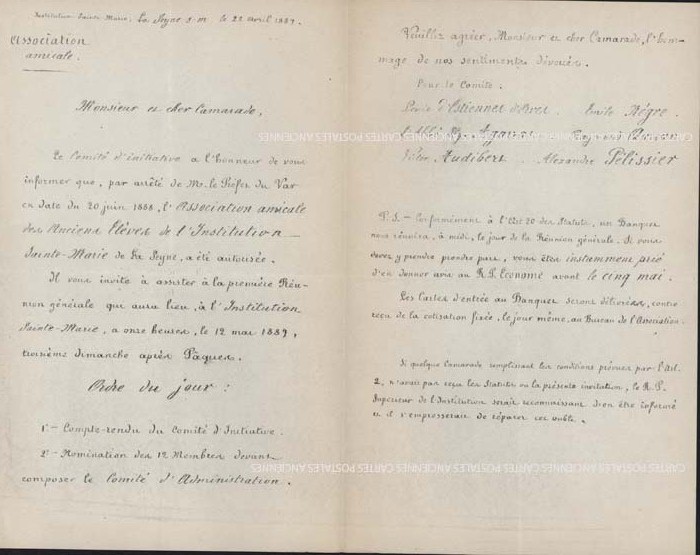 Institution Sainte-Marie. La Seyne s.m. le 22 avril 1889.
Association
amicale.
Monsieur et cher Camarade,
Le Comité d'initiative a l'honneur de vous
informer que, par arrêté de Mr. le Préfet du Var
en date du 20 juin 1888, l'Association amicale
des Anciens Elèves de l'Institution
Sainte-Marie de La Seyne, a été autorisée.
Il vous invite à assister à la première Réu-
nion générale qui aura lieu, à l'Institution
Sainte-Marie, a onze heures, le 12 mai 1889,
troisième dimanche après Pâques.
Ordre du jour :
1º - Compte-rendu du Comité d'Initiative.
2º - Nomination des 12 Membres devant
composer le Comité d'Administration.
Veuillez agréer, Monsieur et cher Camarade, l'hom-
mage de nos sentiments dévoués.
Pour le Comité.
d'Estiennes d'Orves. Emile Nègre.
L'Abbé
Victor Audibert. Alexandre Pélissier
P.S. - Conformément à l'Art 20 des Statuts, un Banquet
nous réunira, à midi, le jour de la Réunion générale. Si vous
devez y prendre part, vous êtes instamment prié
d'en donner avis au R.P. Econome avant le cinq mai.
Les Cartes d'entrée au Banquet seront délivrées, contre
reçu de la cotisation fixée, le jour même, au Bureau de l'Association.
Si quelque Camarade remplissant les conditions prévues par l'Art.
2, n'avait pas reçu les Statuts ou la présente invitation, le R.P.
Supérieur de l'Institution serait reconnaissant d'en être informé
et il s'empresserait de réparer cet oubli.
CARTES POSTALES ANCIENNES CARTES POSTALES ANCIENNES
CARTES POSTALES ANCIENNES CARTES POSTALES ANCIENNES